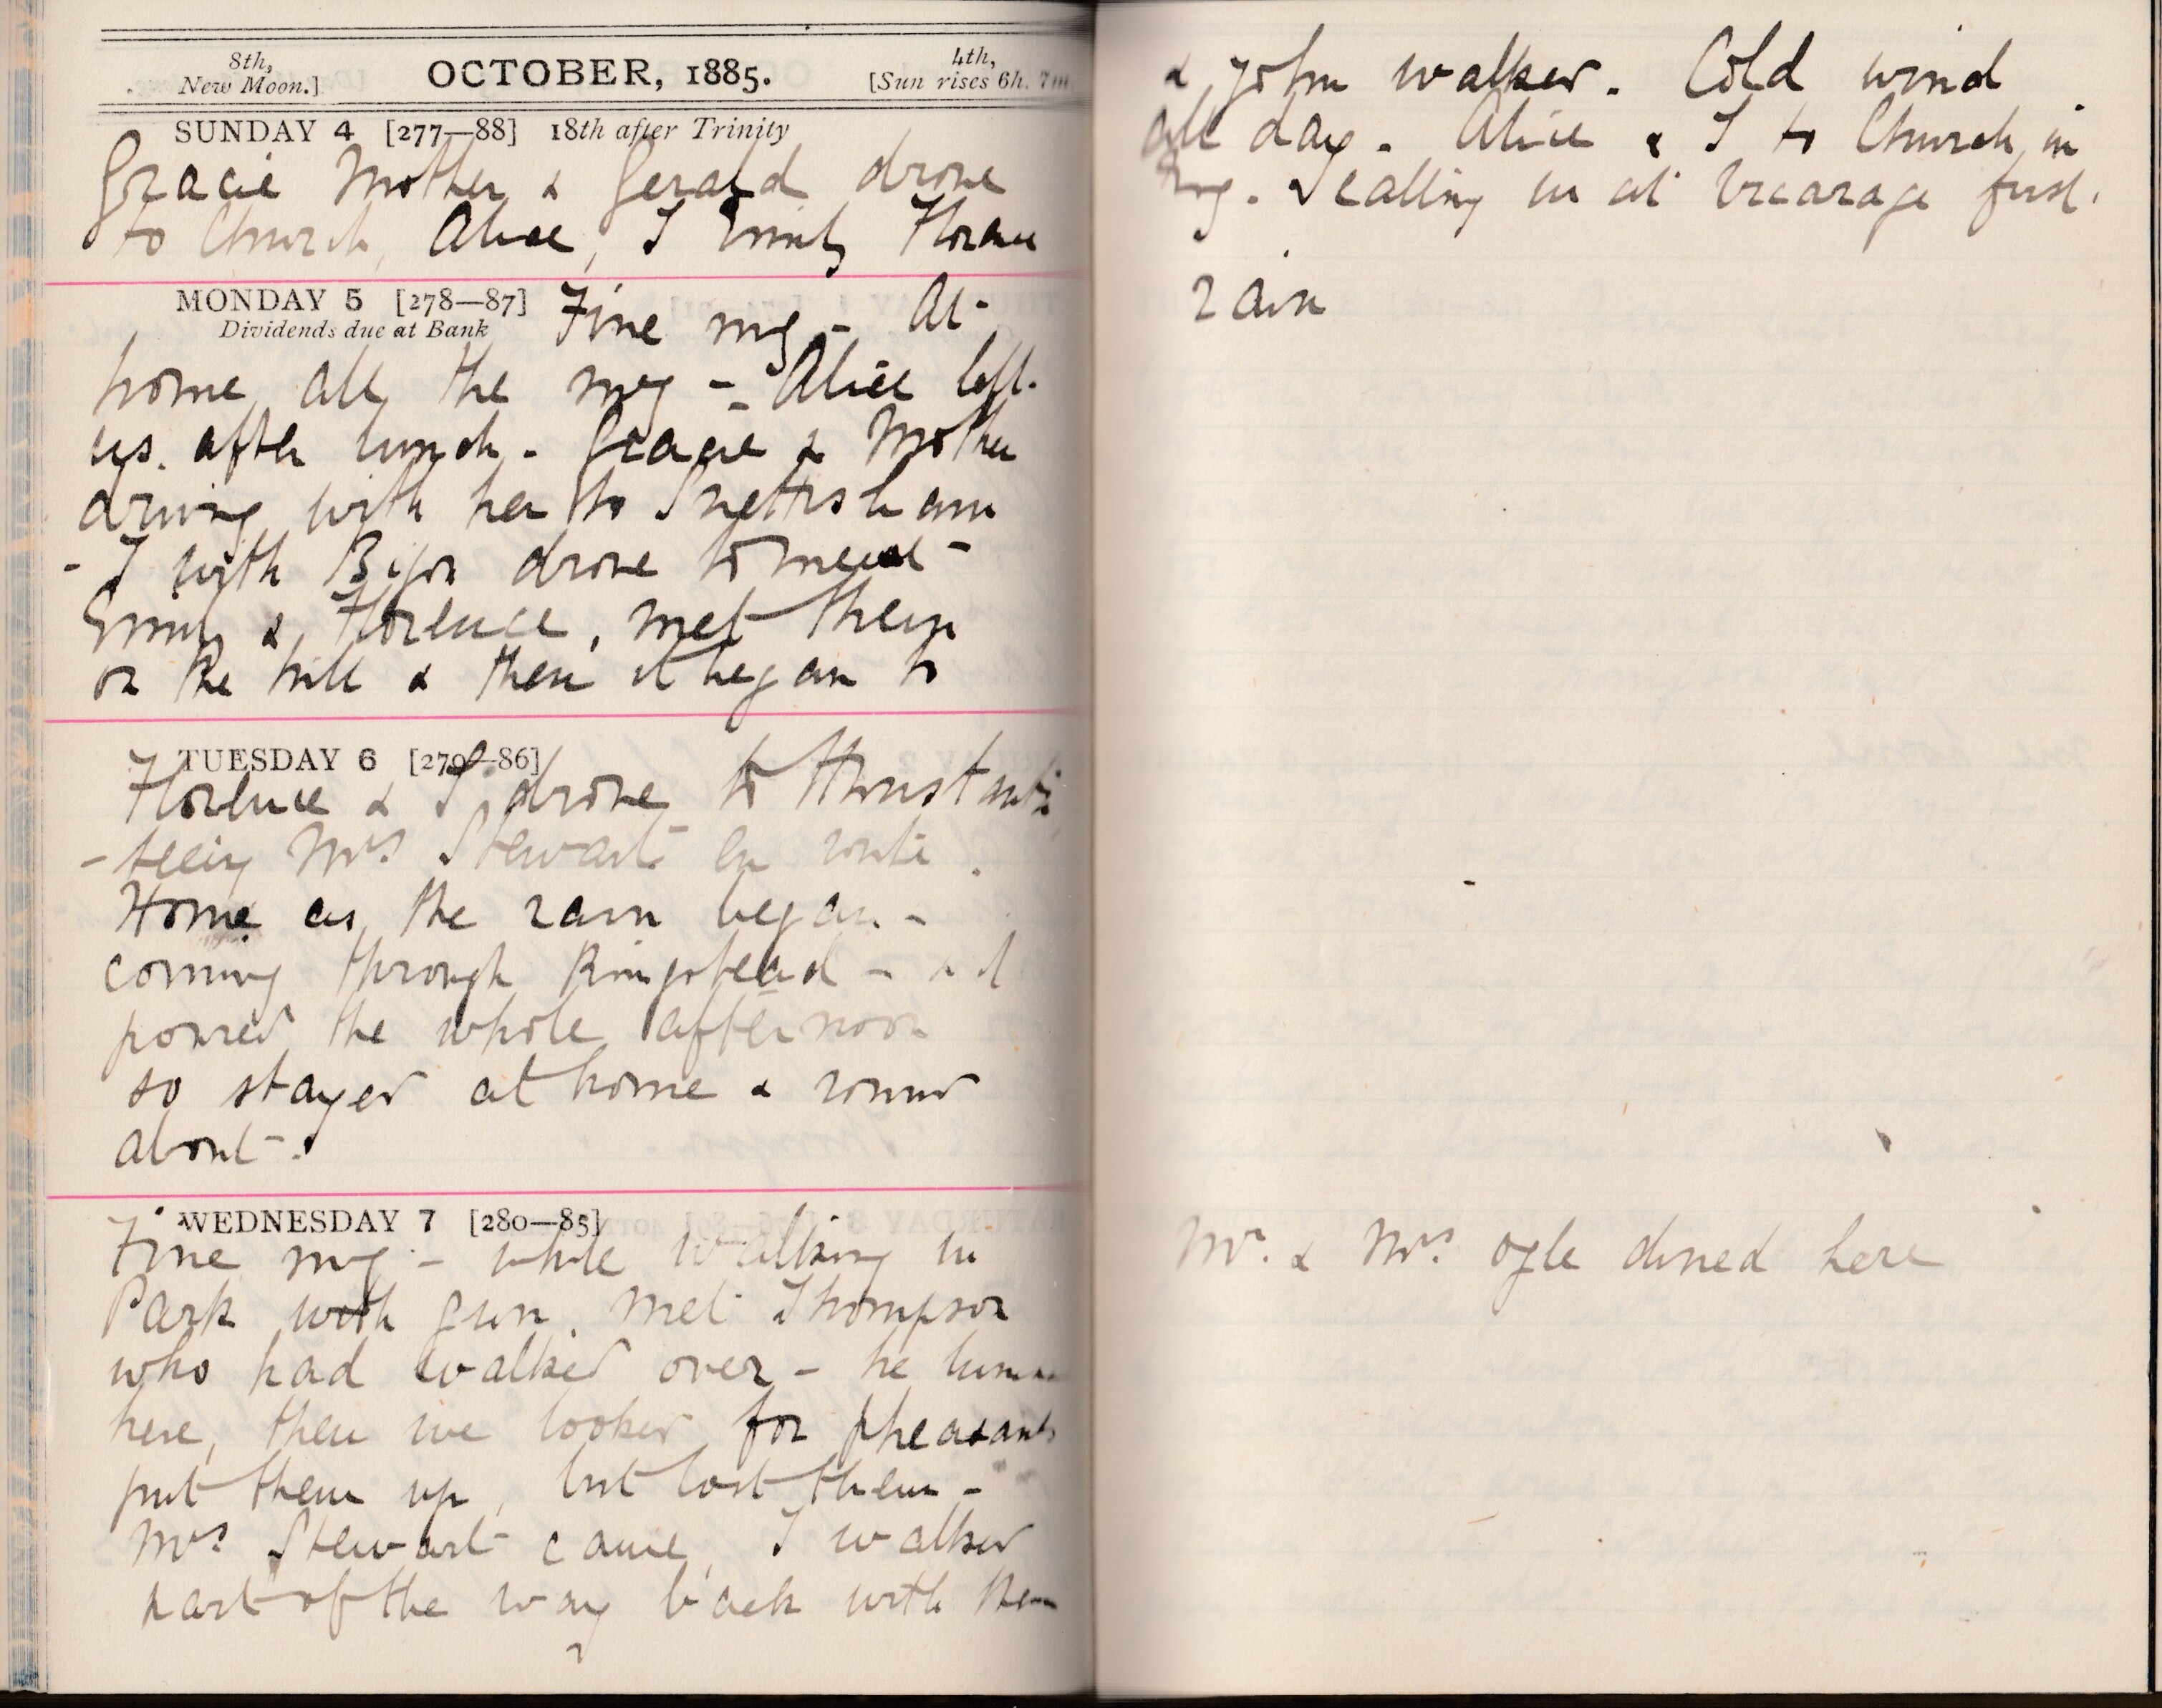 8th,
New Moon.]
OCTOBER, 1885.
4th,
[Sun rises 6h. 7m
SUNDAY 4 [277—88] 18th after Trinity
Gracie Mother & Gerald drove
to Church, Alice, I Emily Florence
MONDAY 5 [278—87]
Dividends due at Bank
Fine mg - At
home all the mg - Alice left
us after lunch - Gracie & Mother
driving with her to Snettisham
- I with Bijou drove to meet
Emily & Florence, met them
on the hill & then it began to
TUESDAY 6 [279—86]
Florence & I drove to Hunstanton
- seeing Mrs Stewart en route.
Home as the rain began -
coming through Ringstead - & it
poured the whole afternoon
so stayed at home & round
about.
WEDNESDAY 7 [280—85]
Fine mg - while walking in
Park with gun met Thompson
who had walked over - he lunched
here, then we looked for pheasants
put them up, but lost them -
Mrs Stewart came, I walked
part of the way back with them
& John walked. Cold wind
all day. Alice & I to Church in
mg. I calling in at Vicarage first.
rain
Mr. & Mrs. Ogle dined here